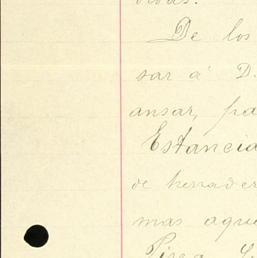 De los
sar á D.
ansar, pa
Estancia
de herrader
mas aque